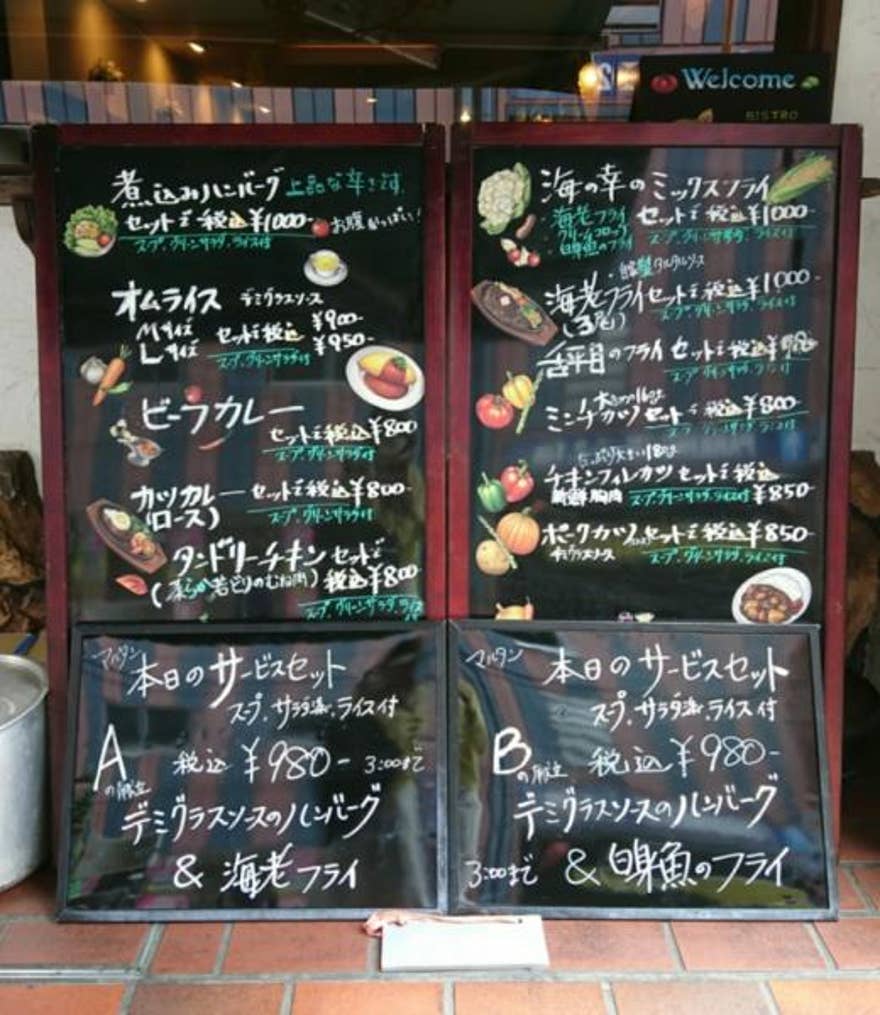 Welcome
BISTRO
煮込みハンバーグ 上品な辛さです
セットで税込¥1000- お腹がいっぱい!
スープ.グリーンサラダ.ライス付
オムライス デミグラスソース
Mサイズ セットで税込 ¥900-
Lサイズ ¥950-
スープ.グリーンサラダ付
ビーフカレー
セットで税込¥800
スープ.グリーンサラダ付
カツカレー セットで税込¥800-
(ロース) スープ.グリーンサラダ付
タンドリーチキン セットで
(柔らか若どりのむね肉) 税込¥800
スープ.グリーンサラダ.ライス付
海の幸のミックスフライ
海老フライ セットで税込¥1000-
クリームコロッケ スープ.グリーンサラダ.ライス付
白身魚のフライ
自家製タルタルソース
海老フライセットで税込¥1000-
(3尾) スープ.グリーンサラダ.ライス付
舌平目のフライ セットで税込
スープ.グリーンサラダ.ライス付
ミンチカツ セットで税込¥800-
スープ.グリーンサラダ.ライス付
たっぷり大きい180g
チキンフィレカツ セットで税込
新鮮胸肉 スープ.グリーンサラダ.ライス付 ¥850-
ポークカツ セットで税込¥850
デミグラスソース スープ.グリーンサラダ.ライス付
マルタン
本日のサービスセット
スープ.サラダ.ライス付
A 税込¥980- 3:00まで
デミグラスソースのハンバーグ
& 海老フライ
マルタン
本日のサービスセット
スープ.サラダ.ライス付
B 税込¥980-
デミグラスソースのハンバーグ
3:00まで & 白身魚のフライ